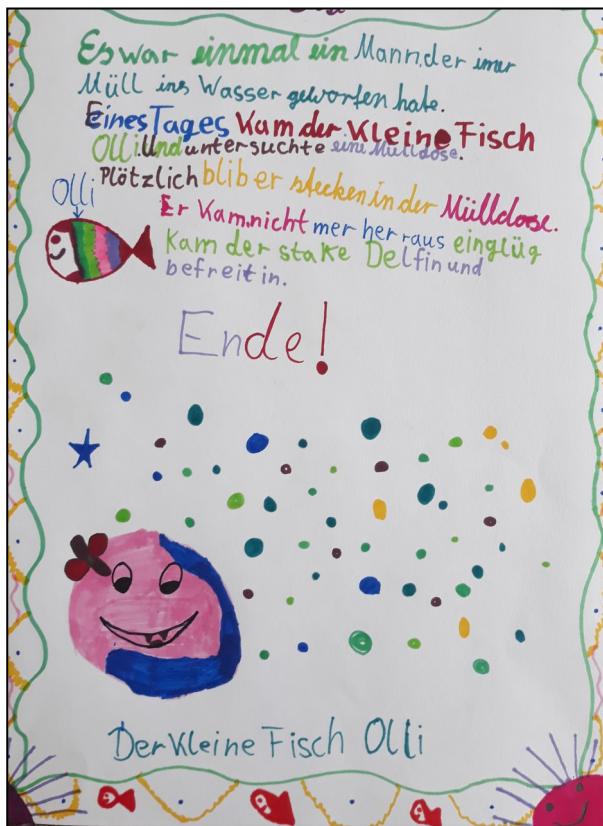 Es war einmal ein Mann,der imer
Müll ins Wasser geworfen hate.
Eines Tages kam der kleine Fisch
Olli.Und untersuchte eine Mülldose.
Plötzlich blib er stecken in der Mülldose.
Olli
Er kam nicht mer herraus einglüg
kam der stake Delfin und
befreit in.
Ende!
Der kleine Fisch Olli